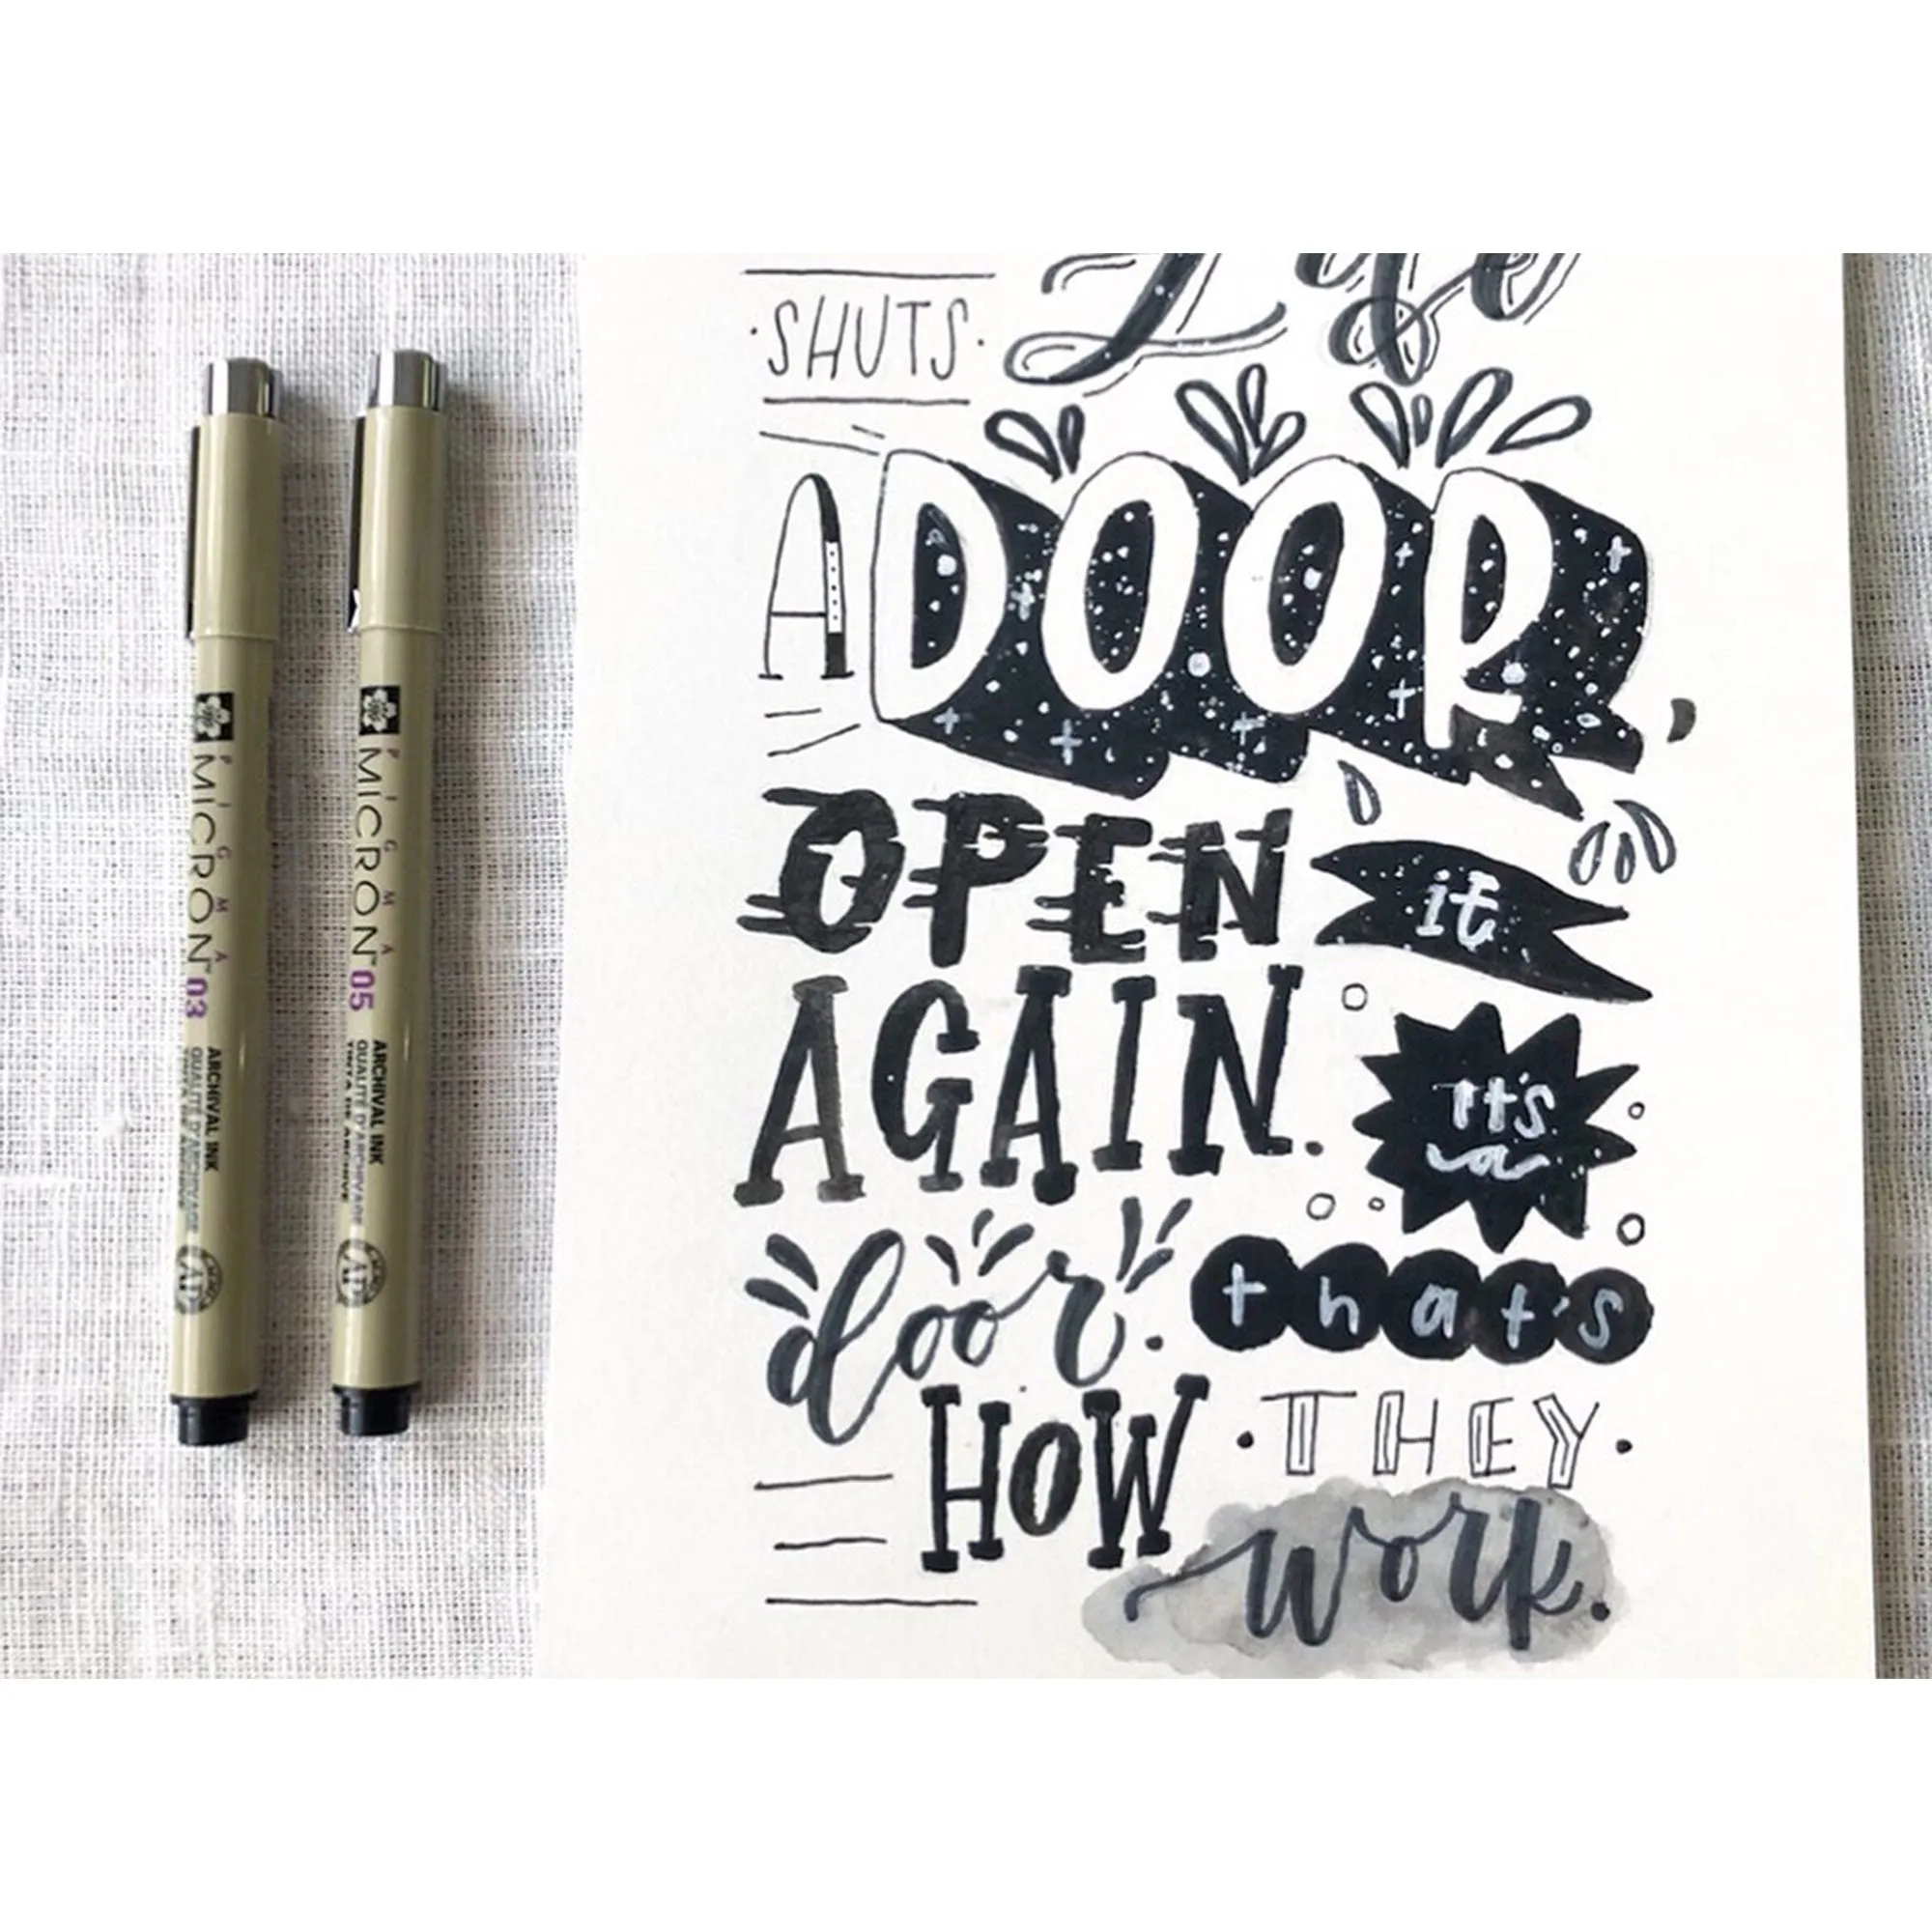 PIGMA
MICRON 03
ARCHIVAL INK
QUALITÉ D'ARCHIVAGE
AP
PIGMA
MICRON 05
ARCHIVAL INK
QUALITÉ D'ARCHIVAGE
AP
·SHUTS· Life
A DOOR,
OPEN it
AGAIN. It's
a
door. that's
HOW ·THEY·
work.